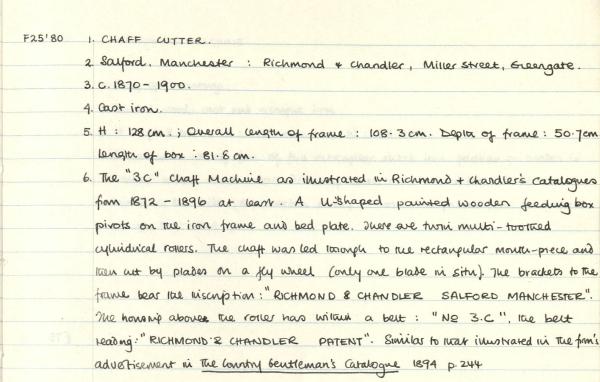 F25'80 1. CHAFF CUTTER.
2. Salford, Manchester : Richmond & Chandler, Miller Street, Greengate.
3. C. 1870 - 1900.
4. Cast iron.
5. H : 128 cm. ; Overall length of frame : 108.3 cm. Depth of frame : 50.7cm
length of box : 81.8 cm.
6. The "3C" Chaff Machine as illustrated in Richmond & Chandler's Catalogues
from 1872 - 1896 at least. A U-shaped painted wooden feeding box
pivots on the iron frame and bed plate. There are twin multi-toothed
cylindrical rollers. The chaff was led through to the rectangular mouth-piece and
then cut by blades on a fly wheel (only one blade in situ). The brackets to the
frame bear the inscription: "RICHMOND & CHANDLER SALFORD MANCHESTER".
The housing above the roller has within a belt : "No 3.C", the belt
reading: "RICHMOND & CHANDLER PATENT". Similar to that illustrated in the firm's
advertisement in The Country Gentleman's Catalogue 1894 p.244